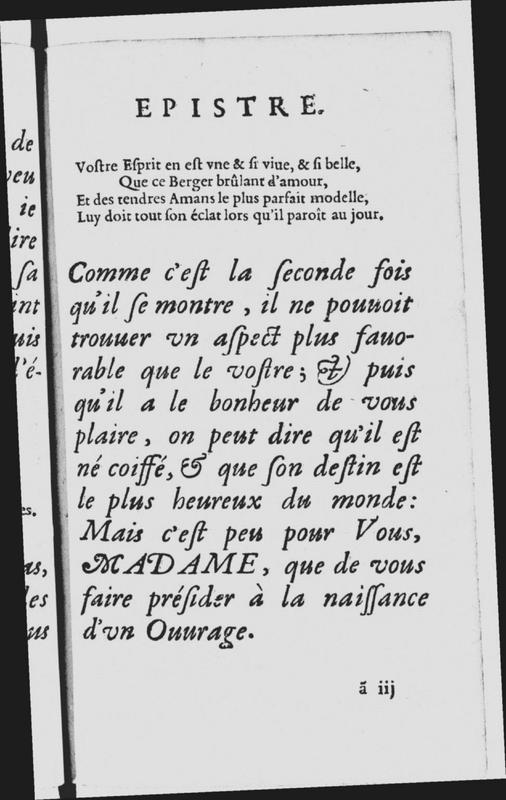 EPISTRE.
Vostre Esprit en est vne & si viue, & si belle,
Que ce Berger brûlant d'amour,
Et des tendres Amans le plus parfait modelle,
Luy doit tout son éclat lors qu'il paroît au jour.
Comme c'est la seconde fois
qu'il se montre, il ne pouuoit
trouuer vn aspect plus fauo-
rable que le vostre; & puis
qu'il a le bonheur de vous
plaire, on peut dire qu'il est
né coiffé, & que son destin est
le plus heureux du monde:
Mais c'est peu pour Vous,
MADAME, que de vous
faire présider à la naissance
d'vn Ouurage.
ã iij
de
ie
sa